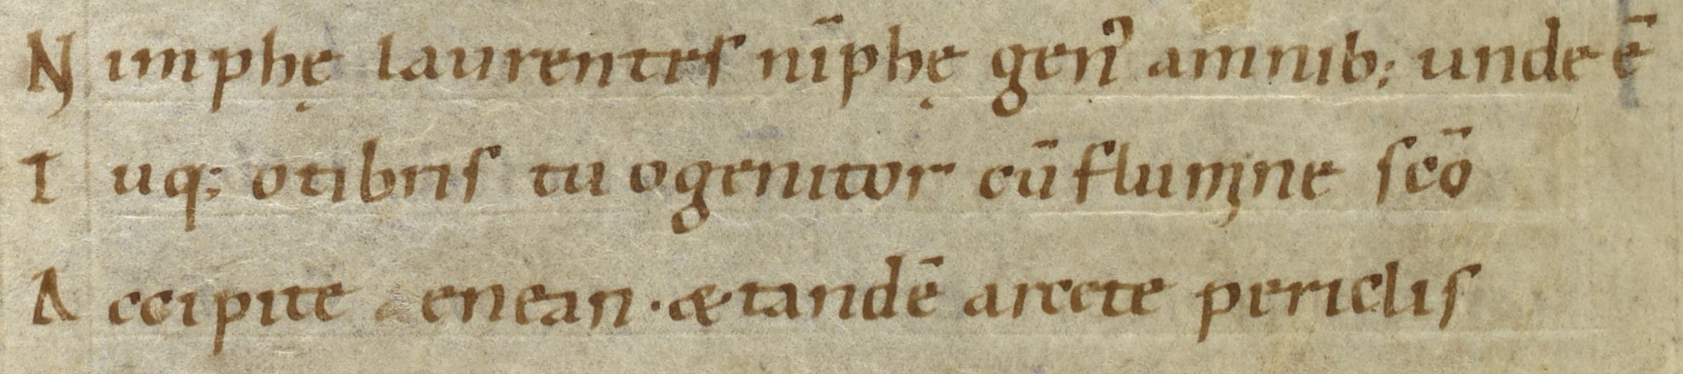 N imphę laurentes nīphę gen᾽ amnib; unde ē
T uq; otibris tu ogenitor cū flumine scō
A ccipite aenean · & tandē arcete periclis